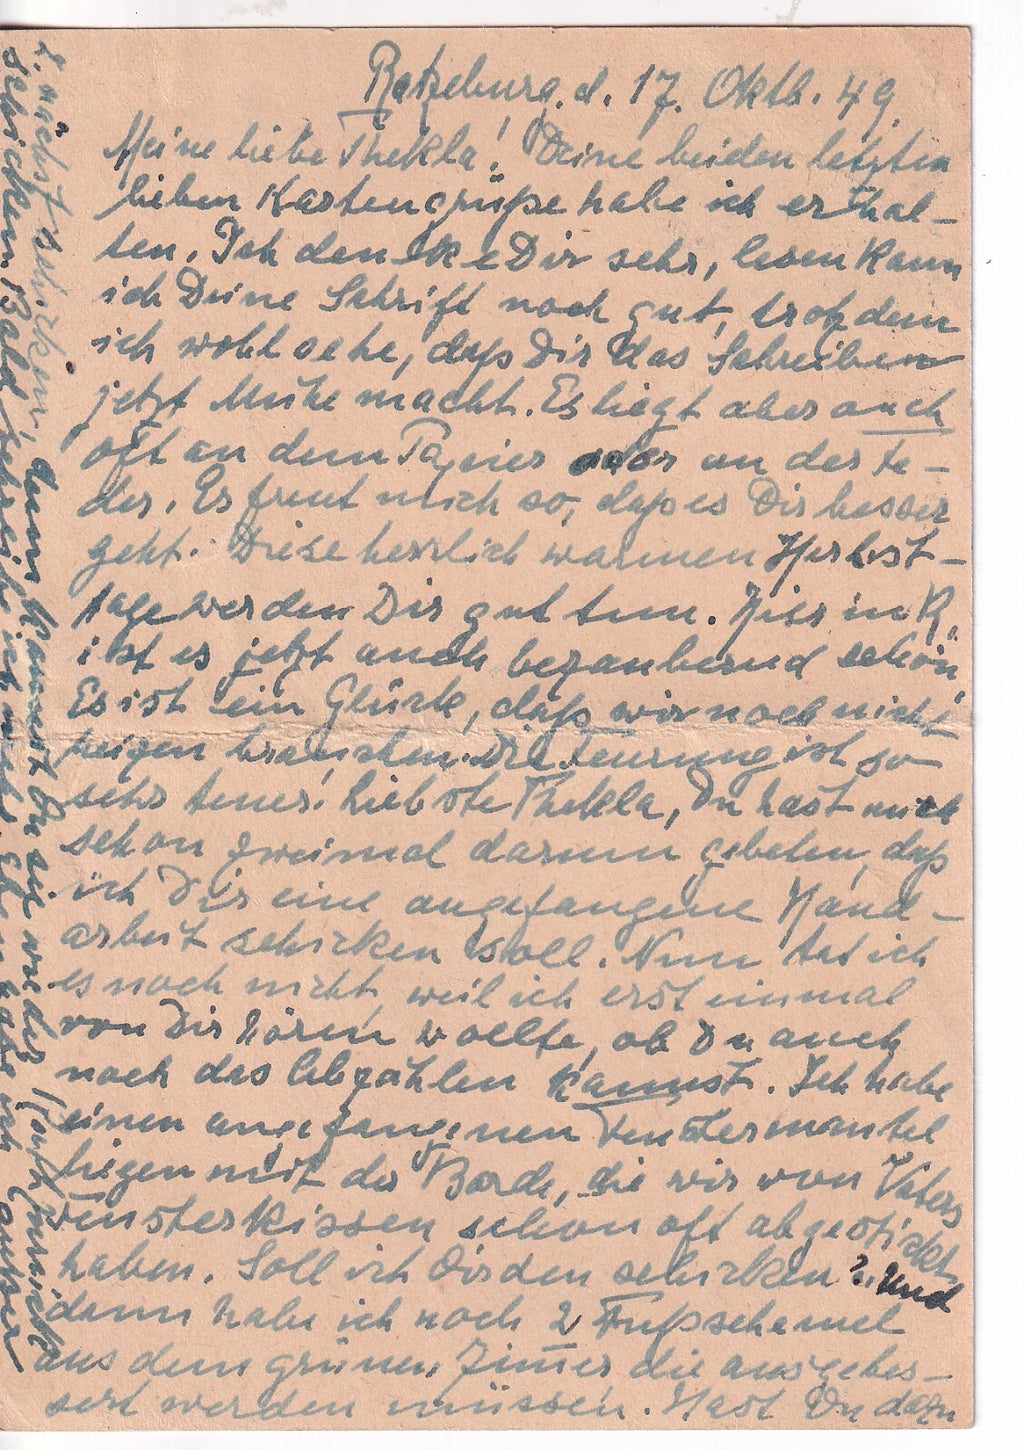 Ratzeburg, d. 17. Oktb. 49.
Meine liebe Thekla! Deine beiden letzten
lieben Kartengrüße habe ich erhal-
ten. Ich danke Dir sehr, lesen kann
ich Deine Schrift noch gut, trotzdem
ich wohl sehe, daß Dir das Schreiben
jetzt Mühe macht. Es liegt aber auch
oft an dem Papier oder an der Fe-
der. Es freut mich so, daß es Dir besser
geht. Diese herrlich warmen Herbst-
tage werden Dir gut tun. Hier in R.
ist es jetzt auch bezaubernd schön!
Es ist ein Glück, daß wir noch nicht
heizen brauchen. Die Feuerung ist so
sehr teuer! Liebste Thekla, Du hast mich
schon zweimal darum gebeten, daß
ich Dir eine angefangene Hand-
arbeit schicken soll. Nun tat ich
es noch nicht, weil ich erst einmal
von Dir hören wollte, ob Du auch
noch das Abzählen kannst. Ich habe
einen angefangenen Fenstermantel
liegen mit der Borde, die wir von Vaters
Fensterkissen schon oft abgestickt
haben. Soll ich Dir den schicken? Und
dann habe ich noch 2 Fußschemel
aus dem grünen Zimmer die ausgebes-
sert werden müssen. Hast Du dazu
schicken, dann kannst Du sie wieder zurück
schicken. Bald schreibe ich mehr